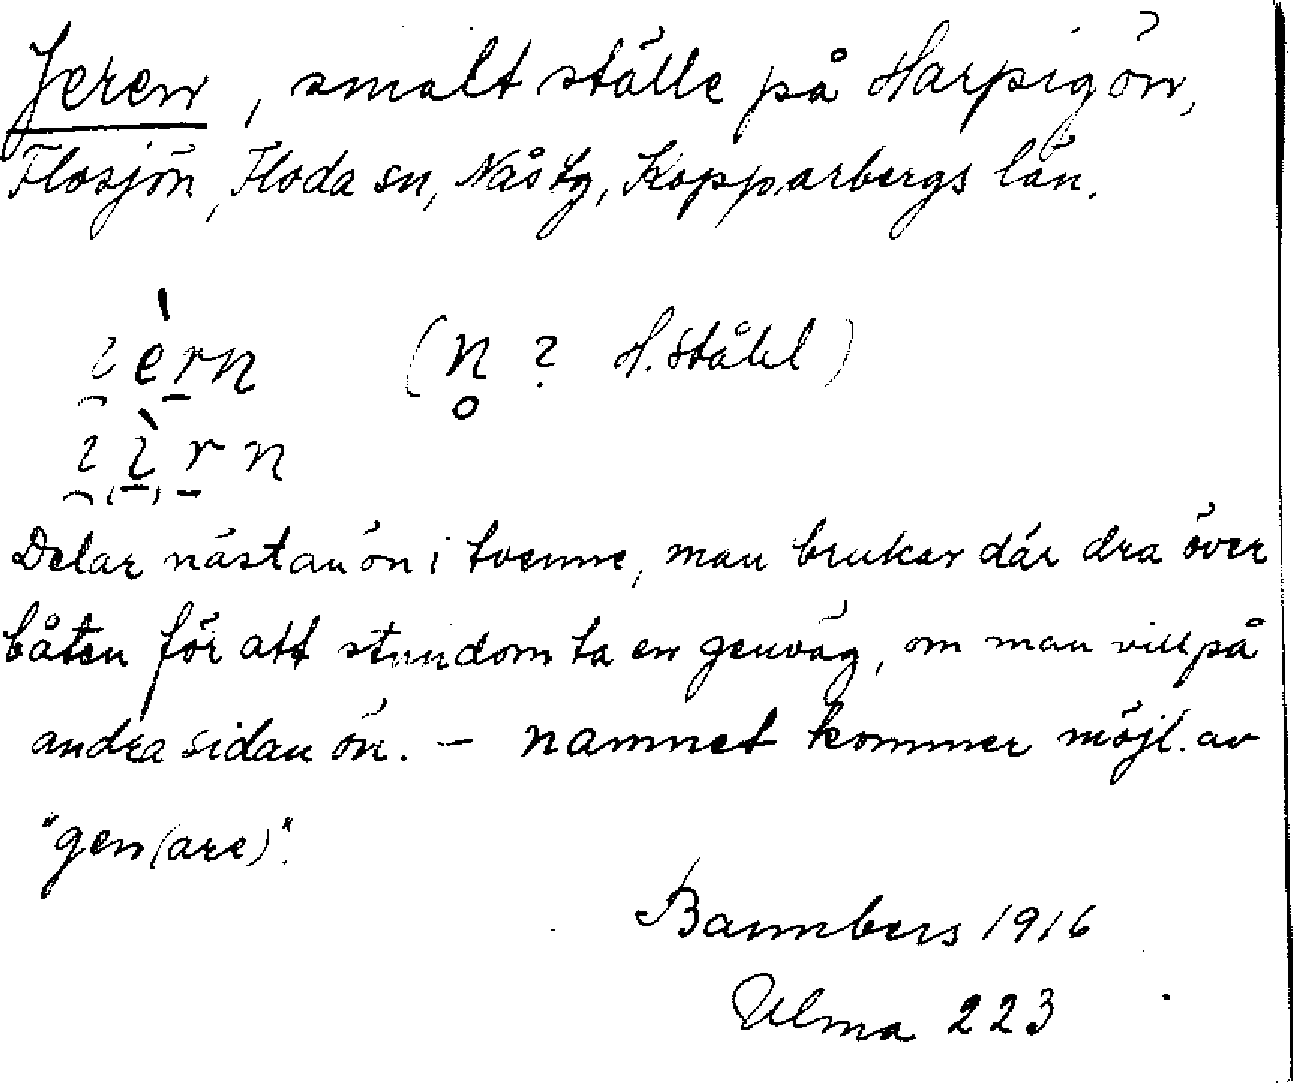 Jeren, smalt ställe på Harpigön,
Flosjön, Floda sn, Nås tg, Kopparbergs län.
i̯èrn (n̥ ? H. Ståhl)
i̯ìrn
Delar nästan ön i tvenne, man brukar där dra över
båten för att stundom ta en genväg, om man vill på
andra sidan ön. – namnet kommer möjl. av
"gen(are)".
Bannbers 1916
Ulma 223